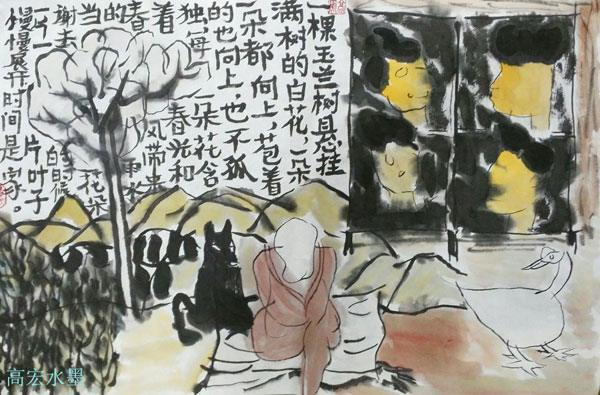 一棵玉兰树悬挂
满树的白花一朵
一朵都向上苞着
的也向上也不孤
独每一朵花含
着春光和
春风带来
的雨水
当花朵
谢去的时候
片叶子
慢慢展开时间是家。
高宏水墨